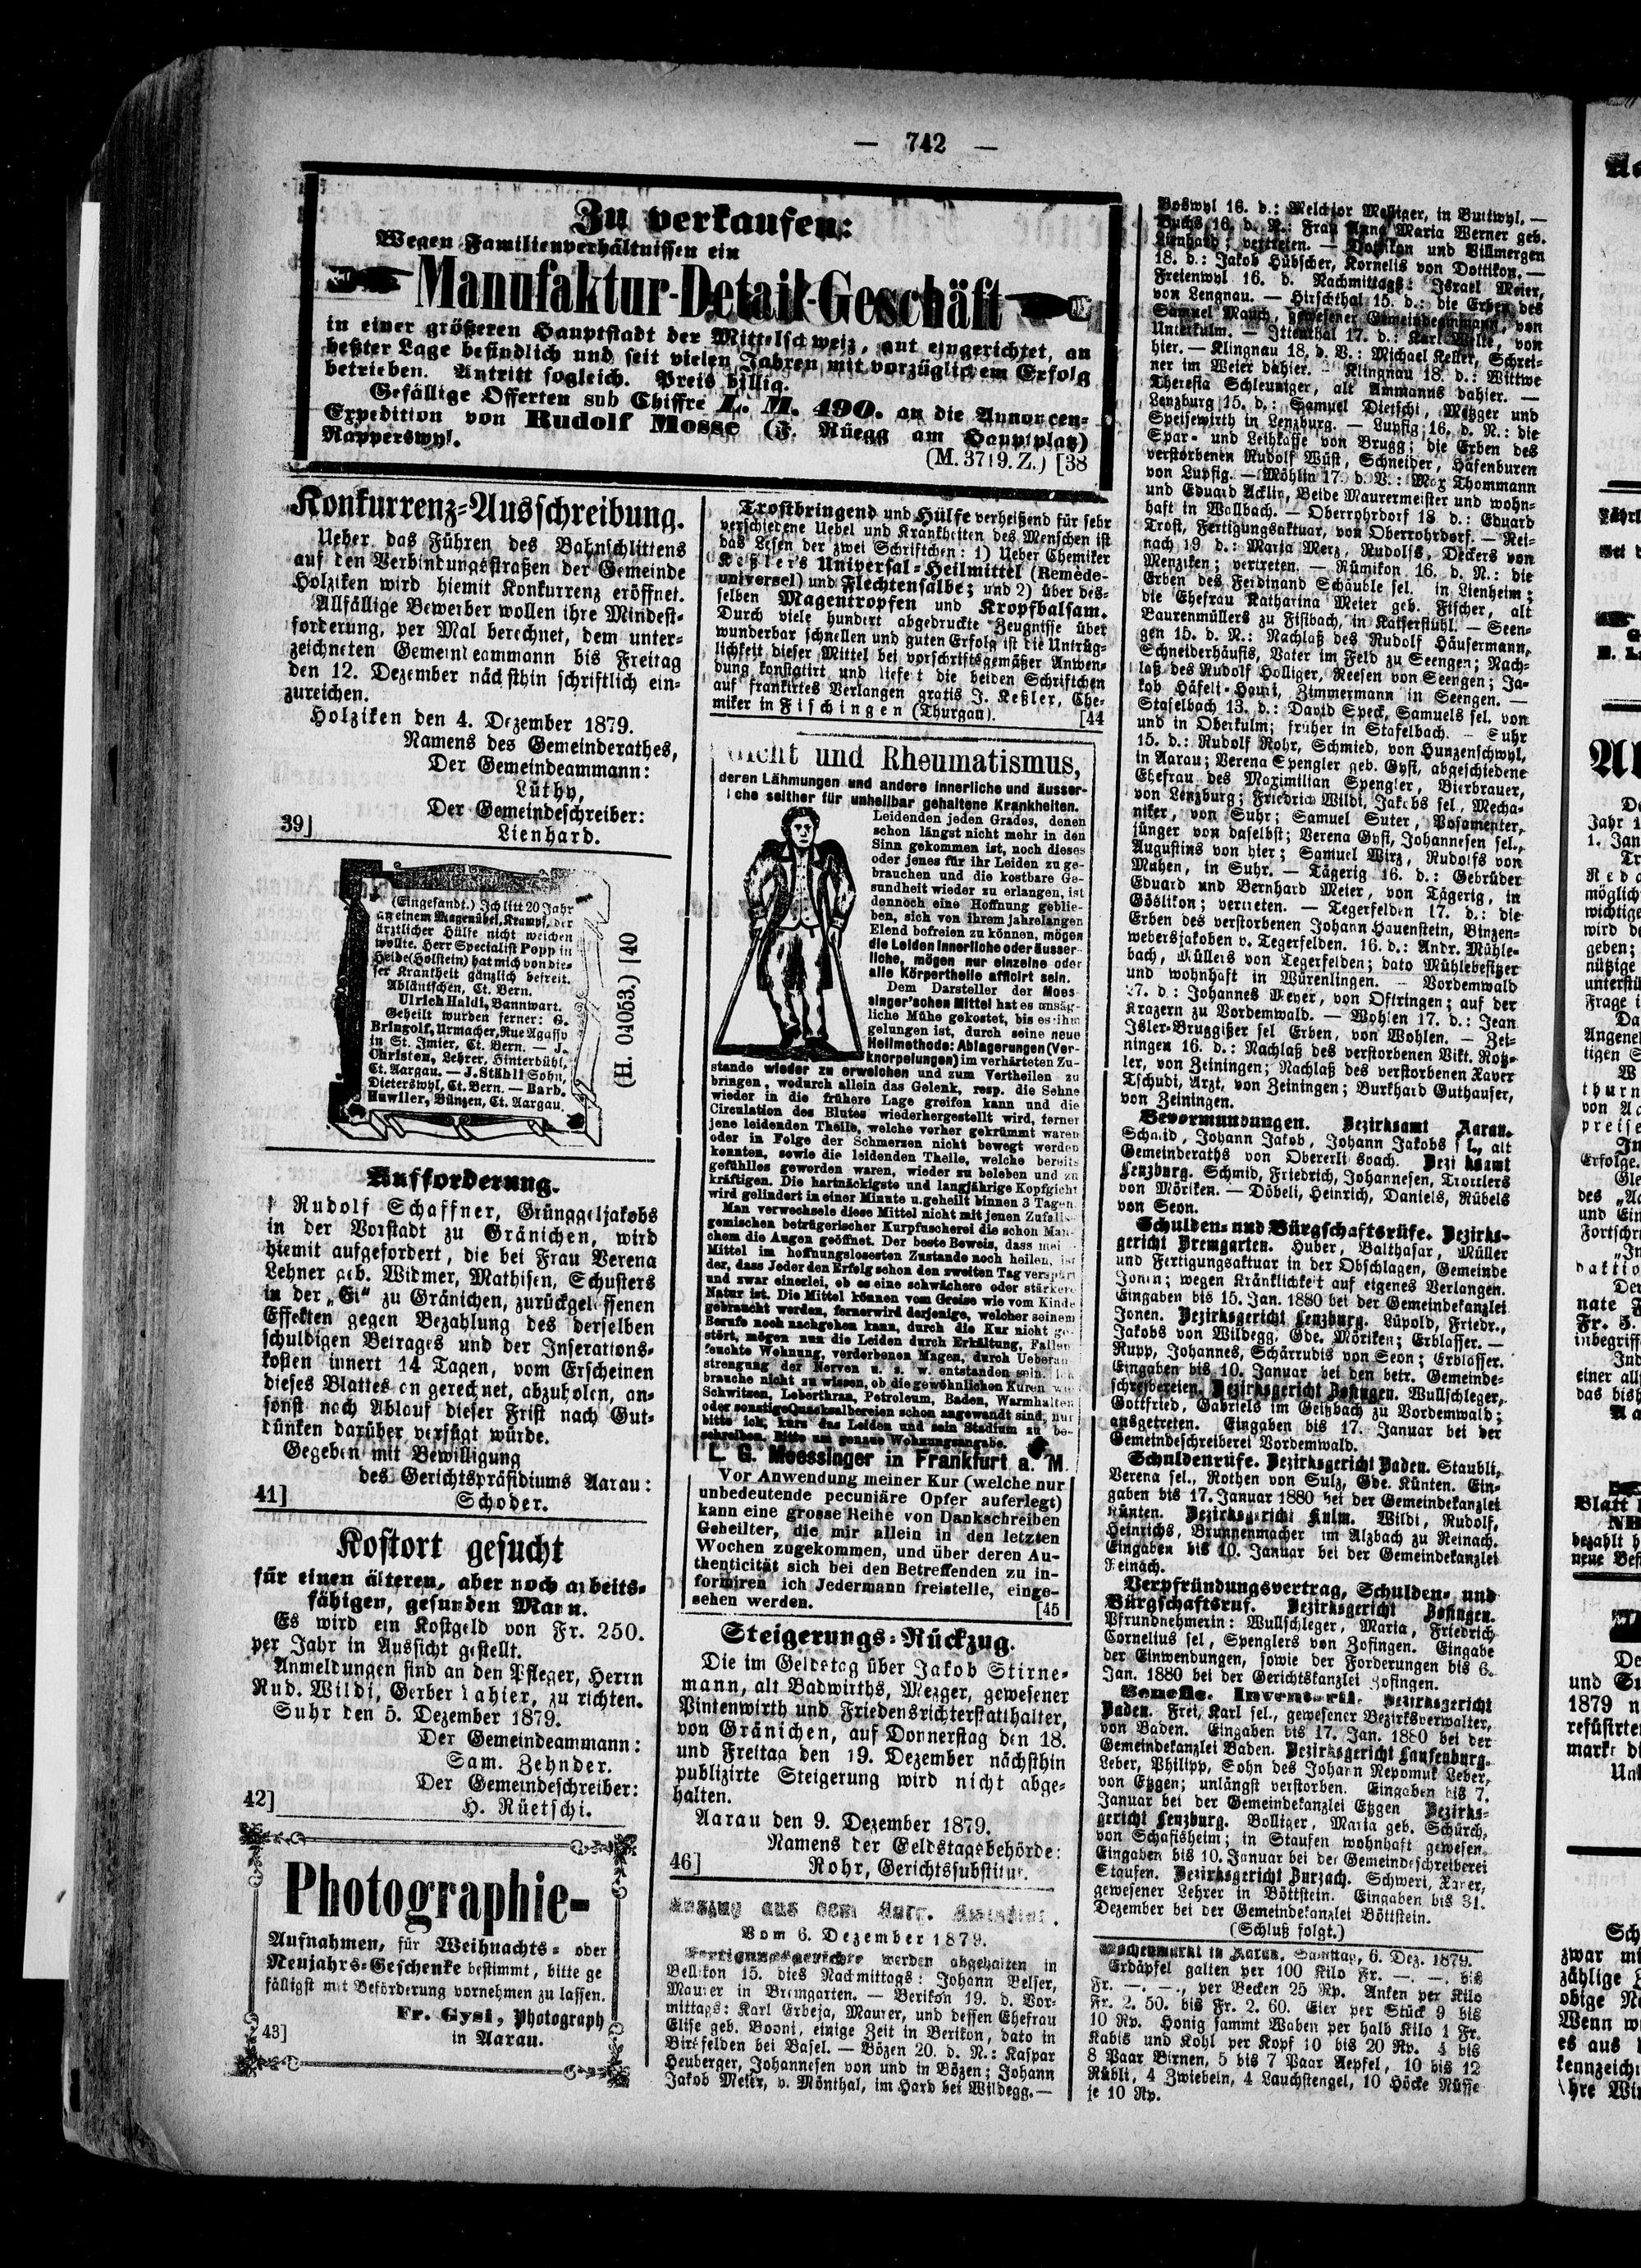 — 742 —
Zu verkaufen:
Wegen Familienverhältnissen ein
Manufaktur-Detail-Geschäft
in einer größeren Hauptstadt der Mittelschweiz, gut eingerichtet, an
beßter Lage befindlich und seit vielen Jahren mit vorzüglichem Erfolg
betrieben. Antritt sogleich. Preis billig.
Gefällige Offerten sub Chiffre L. M. 490. an die Annoncen-
Expedition von Rudolf Mosse (J. Rüegg am Hauptplatz)
Rapperswyl.
(M. 3719. Z.) [38
Konkurrenz-Ausschreibung.
Ueber das Führen des Bahnschlittens
auf den Verbindungsstraßen der Gemeinde
Holziken wird hiemit Konkurrenz eröffnet.
Allfällige Bewerber wollen ihre Mindest-
forderung, per Mal berechnet, dem unter-
zeichneten Gemeindeammann bis Freitag
den 12. Dezember nächsthin schriftlich ein-
zureichen.
Holziken den 4. Dezember 1879.
Namens des Gemeinderathes,
Der Gemeindeammann:
Lüthy,
Der Gemeindeschreiber:
39] Lienhard.
(Eingesandt.) Ich litt 20 Jahr
an einem Magenübel, Krampf, der
ärztlicher Hülfe nicht weichen
wollte. Herr Specialist Popp in
Heide (Holstein) hat mich von die-
ser Krankheit gänzlich befreit.
Abläntschen, Ct. Bern.
Ulrich Haldi, Bannwart.
Geheilt wurden ferner: G.
Bringolf, Urmacher, Rue Agasso
in St. Imier, Ct. Bern. — J.
Christen, Lehrer, Hinterbühl,
Ct. Aargau. — J. Stähli Sohn,
Dieterswyl, Ct. Bern. — Barb.
Huwiler, Bünzen, Ct. Aargau.
(H. 04053.) [40
Aufforderung.
Rudolf Schaffner, Grünggeljakobs
in der Vorstadt zu Gränichen, wird
hiemit aufgefordert, die bei Frau Verena
Lehner geb. Widmer, Mathisen, Schusters
in der „Ei“ zu Gränichen, zurückgelassenen
Effekten gegen Bezahlung des derselben
schuldigen Betrages und der Inserations-
kosten innert 14 Tagen, vom Erscheinen
dieses Blattes an gerechnet, abzuholen, an-
sonst nach Ablauf dieser Frist nach Gut-
dünken darüber verfügt würde.
Gegeben mit Bewilligung
des Gerichtspräsidiums Aarau:
41] Schoder.
Kostort gesucht
für einen älteren, aber noch arbeits-
fähigen, gesunden Mann.
Es wird ein Kostgeld von Fr. 250.
per Jahr in Aussicht gestellt.
Anmeldungen sind an den Pfleger, Herrn
Rud. Wildi, Gerber dahier, zu richten.
Suhr den 5. Dezember 1879.
Der Gemeindeammann:
Sam. Zehnder.
Der Gemeindeschreiber:
42] H. Rüetschi.
Photographie-
Aufnahmen, für Weihnachts- oder
Neujahrs-Geschenke bestimmt, bitte ge
fälligst mit Beförderung vornehmen zu lassen.
Fr. Gysi, Photograph
43] in Aarau.
Trostbringend und Hülfe verheißend für sehr
verschiedene Uebel und Krankheiten des Menschen ist
das Lesen der zwei Schriftchen: 1) Ueber Chemiker
Keßler's Universal-Heilmittel (Remède-
universel) und Flechtensalbe; und 2) über des-
selben Magentropfen und Kropfbalsam.
Durch viele hundert abgedruckte Zeugnisse über
wunderbar schnellen und guten Erfolg ist die Untrüg-
lichkeit dieser Mittel bei vorschriftsgemäßer Anwen-
dung konstatirt und liefert die beiden Schriftchen
auf frankirtes Verlangen gratis J. Keßler, Che-
miker in Fischingen (Thurgau). [44
Gicht und Rheumatismus,
deren Lähmungen und andere innerliche und äusser-
liche seither für unheilbar gehaltene Krankheiten.
Leidenden jeden Grades, denen
schon längst nicht mehr in den
Sinn gekommen ist, noch dieses
oder jenes für ihr Leiden zu ge-
brauchen und die kostbare Ge-
sundheit wieder zu erlangen, ist
dennoch eine Hoffnung geblie-
ben, sich von ihrem jahrelangen
Elend befreien zu können, mögen
die Leiden innerliche oder äusser-
liche, mögen nur einzelne oder
alle Körpertheile afficirt sein.
Dem Darsteller der Moes-
singer'schen Mittel hat es unsäg-
liche Mühe gekostet, bis es ihm
gelungen ist, durch seine neue
Heilmethode: Ablagerungen (Ver-
knorpelungen) im verhärteten Zu-
stande wieder zu erweichen und zum Vertheilen zu
bringen, wodurch allein das Gelenk, resp. die Sehne
wieder in die frühere Lage greifen kann und die
Circulation des Blutes wiederhergestellt wird, ferner
jene leidenden Theile, welche vorher gekrümmt waren
oder in Folge der Schmerzen nicht bewegt werden
konnten, sowie die leidenden Theile, welche bereits
gefühllos geworden waren, wieder zu beleben und zu
kräftigen. Die hartnäckigste und langjährige Kopfgicht
wird gelindert in einer Minute u. geheilt binnen 3 Tagen.
Man verwechsele diese Mittel nicht mit jenen Zufalls-
gemischen betrügerischer Kurpfuscherei die schon Man-
chem die Augen geöffnet. Der beste Beweis, dass mei
Mittel im hoffnungslosesten Zustande noch heilen, ist
der, dass Jeder den Erfolg schon den zweiten Tag verspürt
und zwar einerlei, ob es eine schwächere oder stärkere
Natur ist. Die Mittel können vom Greise wie vom Kinde
gebraucht werden, ferner wird derjenige, welcher seinem
Berufe noch nachgehen kann, durch die Kur nicht ge-
stört, mögen nun die Leiden durch Erkältung, Fallen
feuchte Wohnung, verdorbenen Magen, durch Ueberan
strengung der Nerven u. s. w. entstanden sein. Ich
brauche nicht zu wissen, ob die gewöhnlichen Kuren wie
Schwitzen, Leberthran, Petroleum, Baden, Warmhalten
oder sonstige Quacksalbereien schon angewandt sind, nur
bitte ich, kurz das Leiden und sein Stadium zu be-
schreiben. Bitte um genaue Wohnungsangabe.
L. G. Moessinger in Frankfurt a. M.
Vor Anwendung meiner Kur (welche nur
unbedeutende pecuniäre Opfer auferlegt)
kann eine grosse Reihe von Dankschreiben
Geheilter, die mir allein in den letzten
Wochen zugekommen, und über deren Au-
thenticität sich bei den Betreffenden zu in-
formiren ich Jedermann freistelle, einge-
sehen werden. [45
Steigerungs-Rückzug.
Die im Geldstag über Jakob Stirne-
mann, alt Badwirths, Mezger, gewesener
Pintenwirth und Friedensrichterstatthalter,
von Gränichen, auf Donnerstag den 18.
und Freitag den 19. Dezember nächsthin
publizirte Steigerung wird nicht abge-
halten.
Aarau den 9. Dezember 1879.
Namens der Geldstagsbehörde:
46] Rohr, Gerichtssubstitut.
Auszug aus dem Aarg. Amtsblatt.
Vom 6. Dezember 1879.
Fertigungsgerichte werden abgehalten in
Bellikon 15. dies Nachmittags: Johann Belser,
Maurer in Bremgarten. — Berikon 19. d. Vor-
mittags: Karl Erbeja, Maurer, und dessen Ehefrau
Elise geb. Booni, einige Zeit in Berikon, dato in
Birsfelden bei Basel. — Bözen 20. d. N.: Kaspar
Heuberger, Johannesen von und in Bözen; Johann
Jakob Meier, v. Mönthal, im Hard bei Wildegg. —
Boswyl 16. d.: Melchior Meßiger, in Buttwyl. —
Buchs 16. d. N.: Frau Anna Maria Werner geb.
Lienhard; vertreten. — Dottikon und Villmergen
18. d.: Jakob Hübscher, Kornelis von Dottikon. —
Freienwyl 16. d. Nachmittags: Israel Meier,
von Lengnau. — Hirschthal 15. d.: die Erben des
Samuel Mauch, gewesener Gemeindeammann, von
Unterkulm. — Ittenthal 17. d.: Karl Welte, von
hier. — Klingnau 18. d. V.: Michael Keller, Schrei-
ner im Weier dahier. — Klingnau 18. d.: Wittwe
Theresia Schleuniger, alt Ammanns dahier. —
Lenzburg 15. d.: Samuel Dietschi, Metzger und
Speisewirth in Lenzburg. — Lupfig 16. d. N.: die
Spar- und Leihkasse von Brugg; die Erben des
verstorbenen Rudolf Wüst, Schneider, Häfenburen
von Lupfig. — Möhlin 17. d. V.: Max Thommann
und Eduard Acklin, Beide Maurermeister und wohn-
haft in Wallbach. — Oberrohrdorf 18. d.: Eduard
Trost, Fertigungsaktuar, von Oberrohrdorf. — Rei-
nach 19. d.: Maria Merz, Rudolfs, Deckers von
Menziken; vertreten. — Rümikon 16. d. N.: die
Erben des Ferdinand Schäuble sel. in Lienheim;
die Ehefrau Katharina Meier geb. Fischer, alt
Baurenmüllers zu Fisibach, in Kaiserstuhl. — Seen-
gen 15. d. N.: Nachlaß des Rudolf Häusermann,
Schneiderhäufis, Vater im Feld zu Seengen; Nach-
laß des Rudolf Holliger, Reesen von Seengen; Ja-
kob Häfeli-Hauri, Zimmermann in Seengen. —
Stafelbach 13. d.: David Speck, Samuels sel. von
und in Oberkulm; früher in Stafelbach. — Suhr
15. d.: Rudolf Rohr, Schmied, von Hunzenschwyl,
in Aarau; Verena Spengler geb. Gysi, abgeschiedene
Ehefrau des Maximilian Spengler, Bierbrauer,
von Lenzburg; Friedrich Wildi, Jakobs sel., Mecha-
niker, von Suhr; Samuel Suter, Posamenter,
jünger von daselbst; Verena Gysi, Johannesen sel.,
Augustins von hier; Samuel Wirz, Rudolfs von
Muhen, in Suhr. — Tägerig 16. d.: Gebrüder
Eduard und Bernhard Meier, von Tägerig, in
Göslikon; vertreten. — Tegerfelden 17. d.: die
Erben des verstorbenen Johann Hauenstein, Binzen-
webersjakoben v. Tegerfelden. 16. d.: Andr. Mühle-
bach, Müllers von Tegerfelden; dato Mühlebesitzer
und wohnhaft in Würenlingen. — Vordemwald
17. d.: Johannes Meyer, von Oftringen; auf der
Krazern zu Vordemwald. — Wohlen 17. d.: Jean
Isler-Bruggißer sel Erben, von Wohlen. — Zei-
ningen 16. d.: Nachlaß des verstorbenen Vikt. Rotz-
ler, von Zeiningen; Nachlaß des verstorbenen Xaver
Tschudi, Arzt, von Zeiningen; Burkhard Guthauser,
von Zeiningen.
Bevormundungen. Bezirksamt Aarau.
Schmid, Johann Jakob, Johann Jakobs sel., alt
Gemeinderaths von Obererlisbach. Bezirksamt
Lenzburg. Schmid, Friedrich, Johannesen, Trottlers
von Möriken. — Döbeli, Heinrich, Daniels, Rübels
von Seon.
Schulden- und Bürgschaftsrüfe. Bezirks-
gericht Bremgarten. Huber, Balthasar, Müller
und Fertigungsaktuar in der Obschlagen, Gemeinde
Jonen; wegen Kränklichkeit auf eigenes Verlangen.
Eingaben bis 15. Jan. 1880 bei der Gemeindekanzlei
Jonen. Bezirksgericht Lenzburg. Lüpold, Friedr.,
Jakobs von Wildegg, Gde. Möriken; Erblasser. —
Rupp, Johannes, Schärrudis von Seon; Erblasser.
Eingaben bis 10. Januar bei den betr. Gemeinde-
schreibereien. Bezirksgericht Zofingen. Wullschleger,
Gottfried, Gabriels im Geißbach zu Vordemwald;
ausgetreten. Eingaben bis 17. Januar bei der
Gemeindeschreiberei Vordemwald.
Schuldenrüfe. Bezirksgericht Baden. Staubli,
Verena sel., Rothen von Sulz, Gde. Künten. Ein-
gaben bis 17. Januar 1880 bei der Gemeindekanzlei
Künten. Bezirksgericht Kulm. Wildi, Rudolf,
Heinrichs, Brunnenmacher im Alzbach zu Reinach.
Eingaben bis 10. Januar bei der Gemeindekanzlei
Reinach.
Verpfründungsvertrag, Schulden- und
Bürgschaftsruf. Bezirksgericht Zofingen.
Pfrundnehmerin: Wullschleger, Maria, Friedrich
Cornelius sel, Spenglers von Zofingen. Eingabe
der Einwendungen, sowie der Forderungen bis 6.
Jan. 1880 bei der Gerichtskanzlei Zofingen.
Benefic. Inventarii. Bezirksgericht
Baden. Frei, Karl sel., gewesener Bezirksverwalter,
von Baden. Eingaben bis 17. Jan. 1880 bei der
Gemeindekanzlei Baden. Bezirksgericht Laufenburg.
Leber, Philipp, Sohn des Johann Nepomuk Leber,
von Etzgen; unlängst verstorben. Eingaben bis 7.
Januar bei der Gemeindekanzlei Etzgen Bezirks-
gericht Lenzburg. Bolliger, Maria geb. Schürch,
von Schafisheim; in Staufen wohnhaft gewesen.
Eingaben bis 10. Januar bei der Gemeindeschreiberei
Staufen. Bezirksgericht Zurzach. Schweri, Xaver,
gewesener Lehrer in Böttstein. Eingaben bis 31.
Dezember bei der Gemeindekanzlei Böttstein.
(Schluß folgt.)
Wochenmarkt in Aarau. Samstag, 6. Dez. 1879.
Erdäpfel galten per 100 Kilo Fr. —. —. bis
Fr. —. —., per Becken 25 Rp. Anken per Kilo
Fr. 2. 50. bis Fr. 2. 60. Eier per Stück 9 bis
10 Rp. Honig sammt Waben per halb Kilo 1 Fr.
Kabis und Kohl per Kopf 10 bis 20 Rp. 4 bis
8 Paar Birnen, 5 bis 7 Paar Aepfel, 10 bis 12
Rübli, 4 Zwiebeln, 4 Lauchstengel, 10 Höcke Nüsse
je 10 Rp.